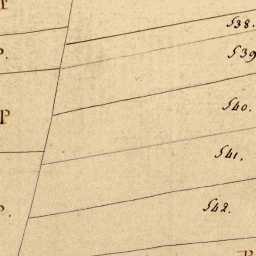 538.
539
P.
540.
P
541.
542.
P.